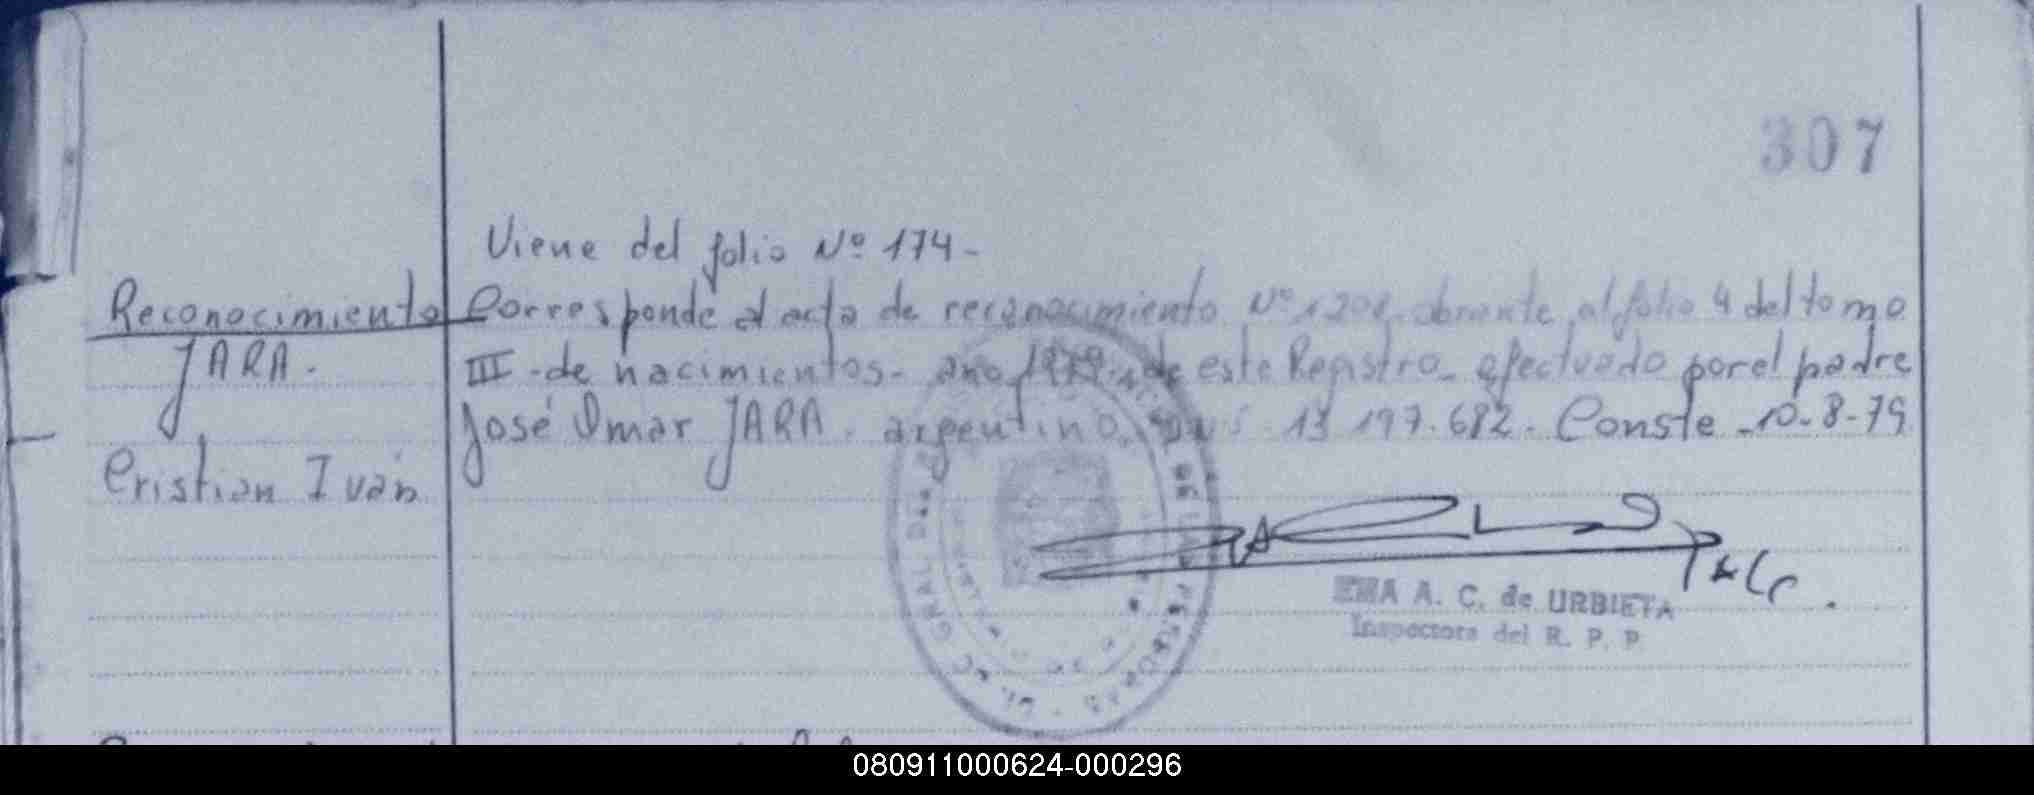 307
Viene del folio Nº 174-
Reconocimiento Corresponde al acta de reconocimiento Nº 1201 obrante al folio 4 del tomo
JARA. III - de nacimientos - año 1979 - de este Registro - efectuado por el padre
José Omar JARA. argentino, 13 197.682. Conste - 10-8-79
Cristian Iván
EMA A. C. de URBIETA
Inspectora del R. P. P.
080911000624-000296